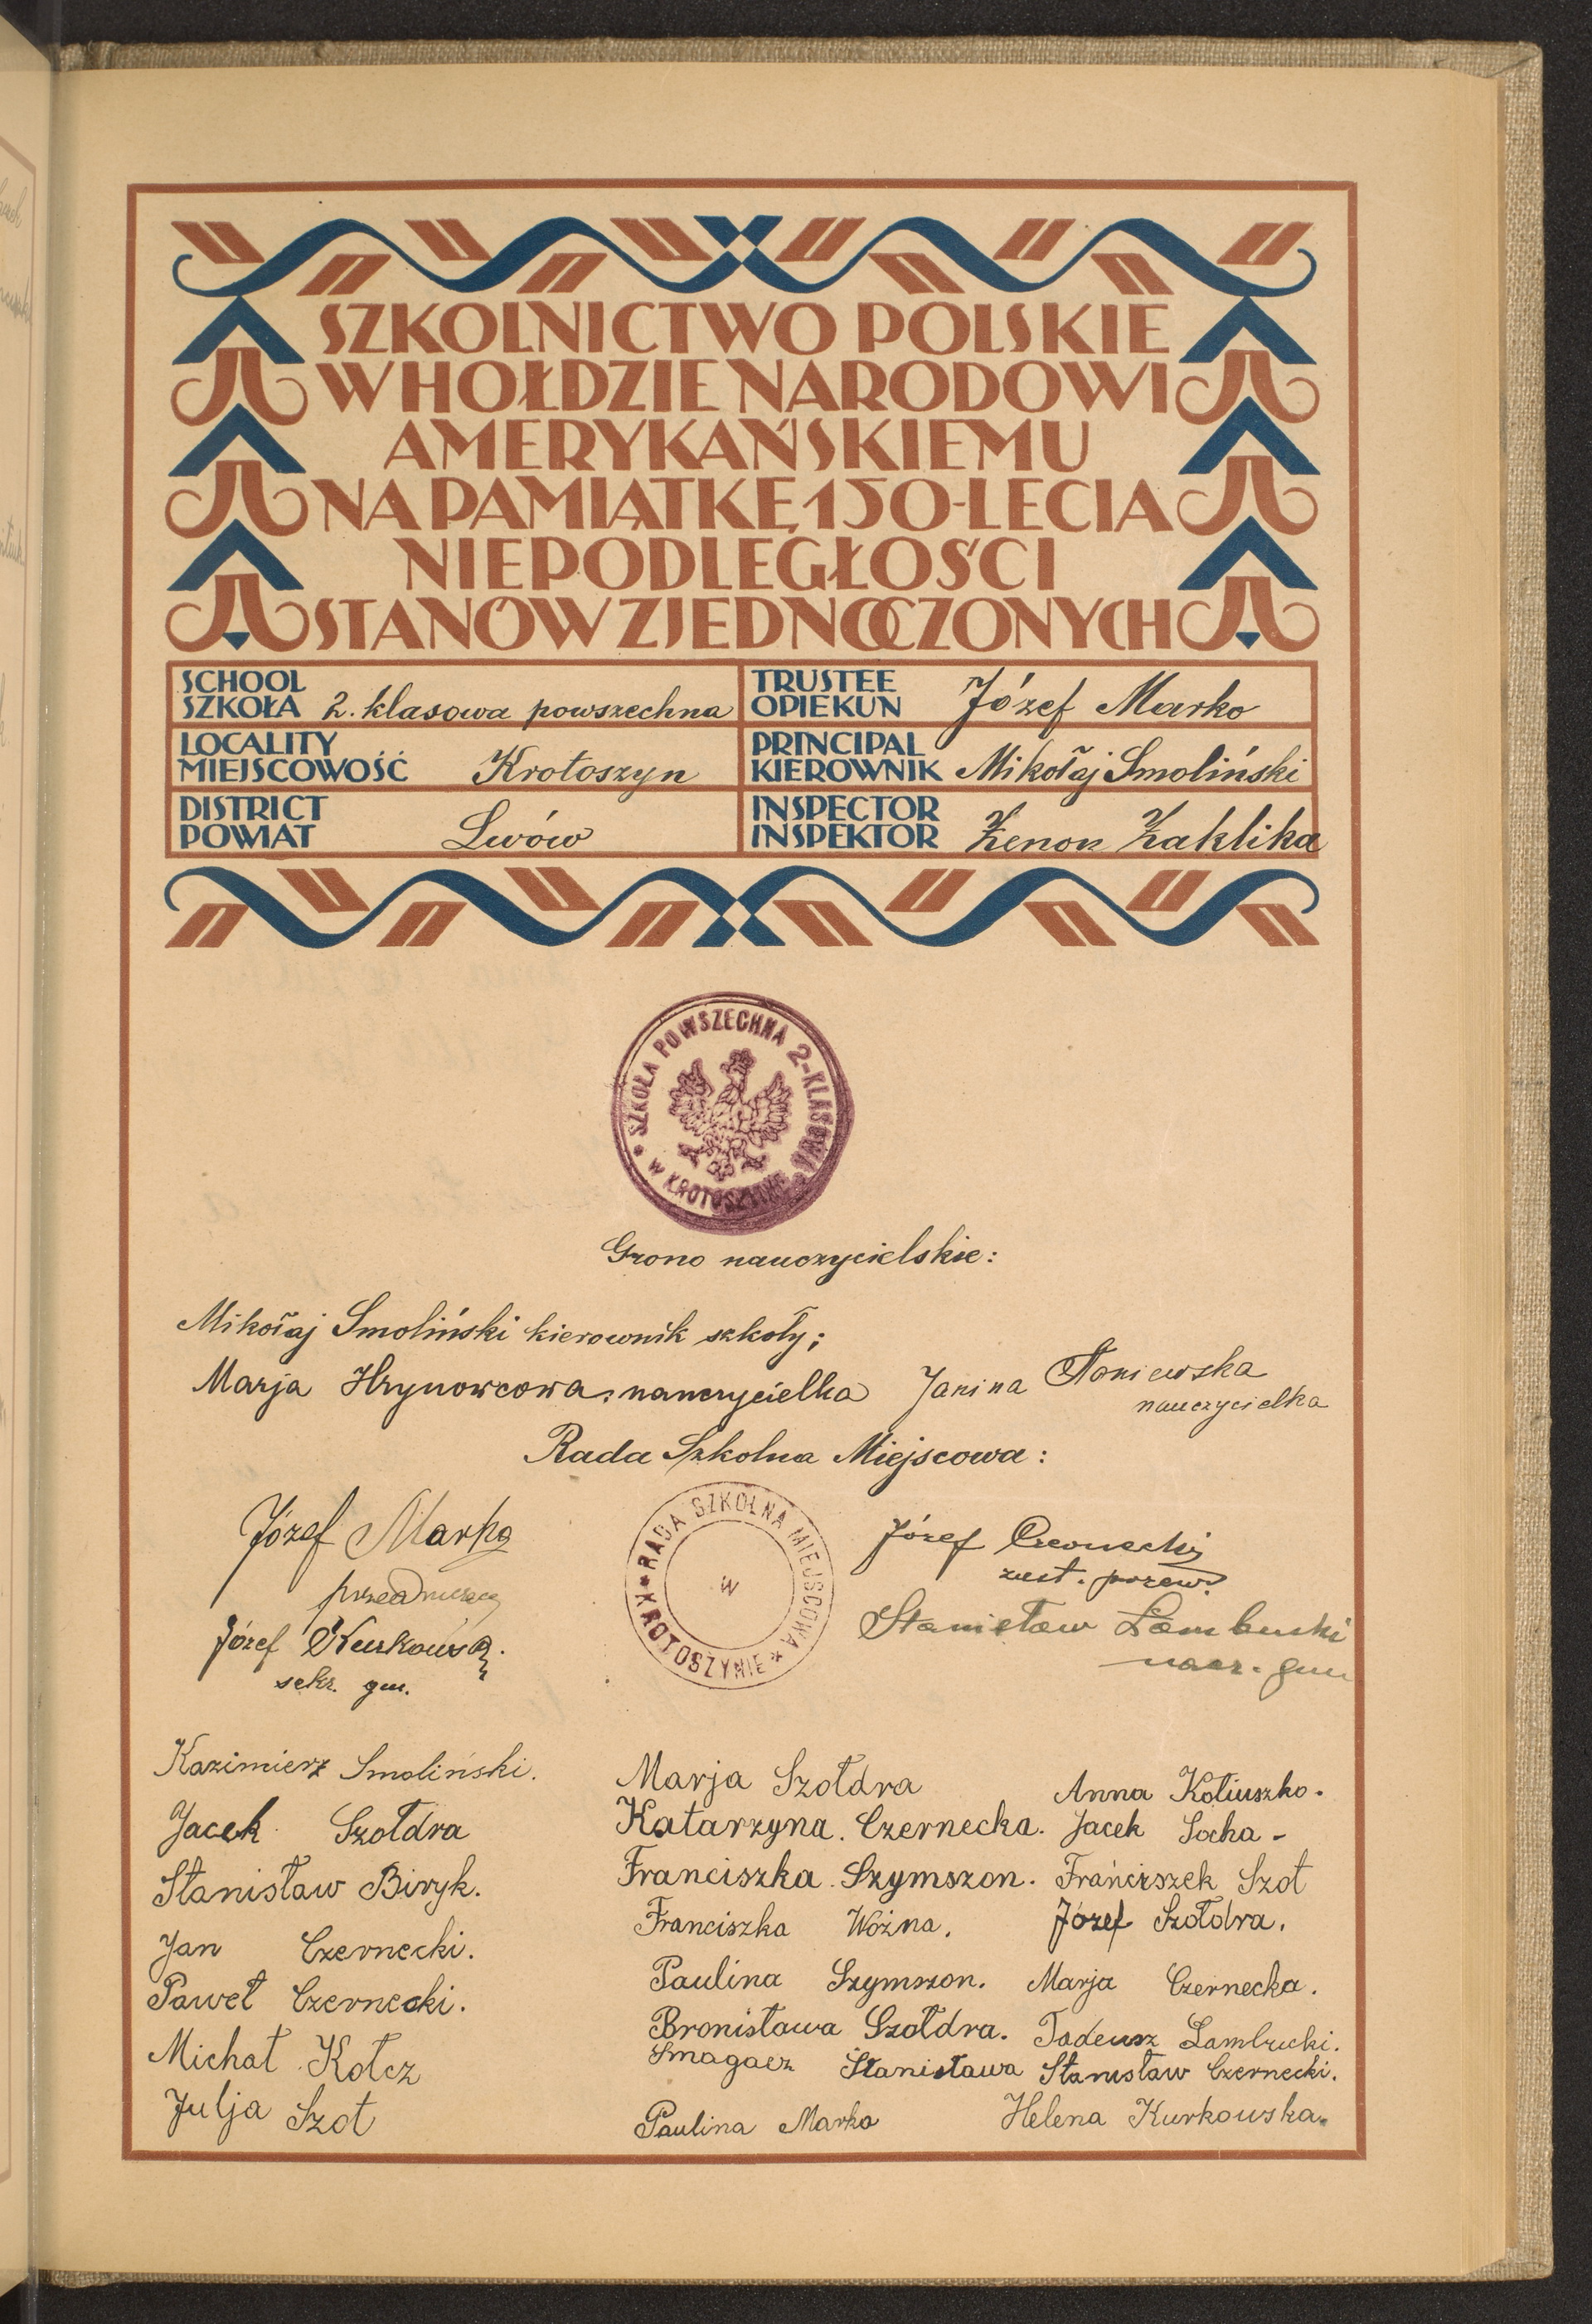 SZKOLNICTWO POLSKIE
W HOŁDZIE NARODOWI
AMERYKAŃSKIEMU
NA PAMIĄTKĘ 150-LECIA
NIEPODLEGŁOŚCI
STANÓW ZJEDNOCZONYCH
SCHOOL
SZKOŁA 2. klasowa powszechna
TRUSTEE
OPIEKUN Józef Marko
LOCALITY
MIEJSCOWOŚĆ Krotoszyn
PRINCIPAL
KIEROWNIK Mikołaj Smoliński
DISTRICT
POWIAT Lwów
INSPECTOR
INSPEKTOR Zenon Zaklika
* SZKOŁA POWSZECHNA 2-KLASOWA *
W KROTOSZYNIE
Grono nauczycielskie:
Mikołaj Smoliński kierownik szkoły;
Marja Hrynowcowa, nauczycielka Janina
nauczycielka
Rada Szkolna Miejscowa:
Józef Marko
Józef Kurkowski
sekr. gm.
* RADA SZKOLNA MIEJSCOWA *
W
KROTOSZYNIE
Józef Czernecki
zast. przew.
Stanisław
nacz. gm
Kazimierz Smoliński.
Jacek Szołdra
Stanisław Biryk.
Jan Czernecki.
Paweł Czernecki.
Michał Kołcz
Julja Szot
Marja Szołdra
Katarzyna. Czernecka.
Franciszka. Szymszon.
Franciszka Woźna.
Paulina Szymszon.
Bronisława Szołdra.
Smagacz Stanisława
Paulina Marko
Anna Kotiuszko.
Jacek Socha -
Franciszek Szot
Józef Szołdra.
Marja Czernecka.
Tadeusz Lambucki.
Stanisław Czernecki.
Helena Kurkowska.